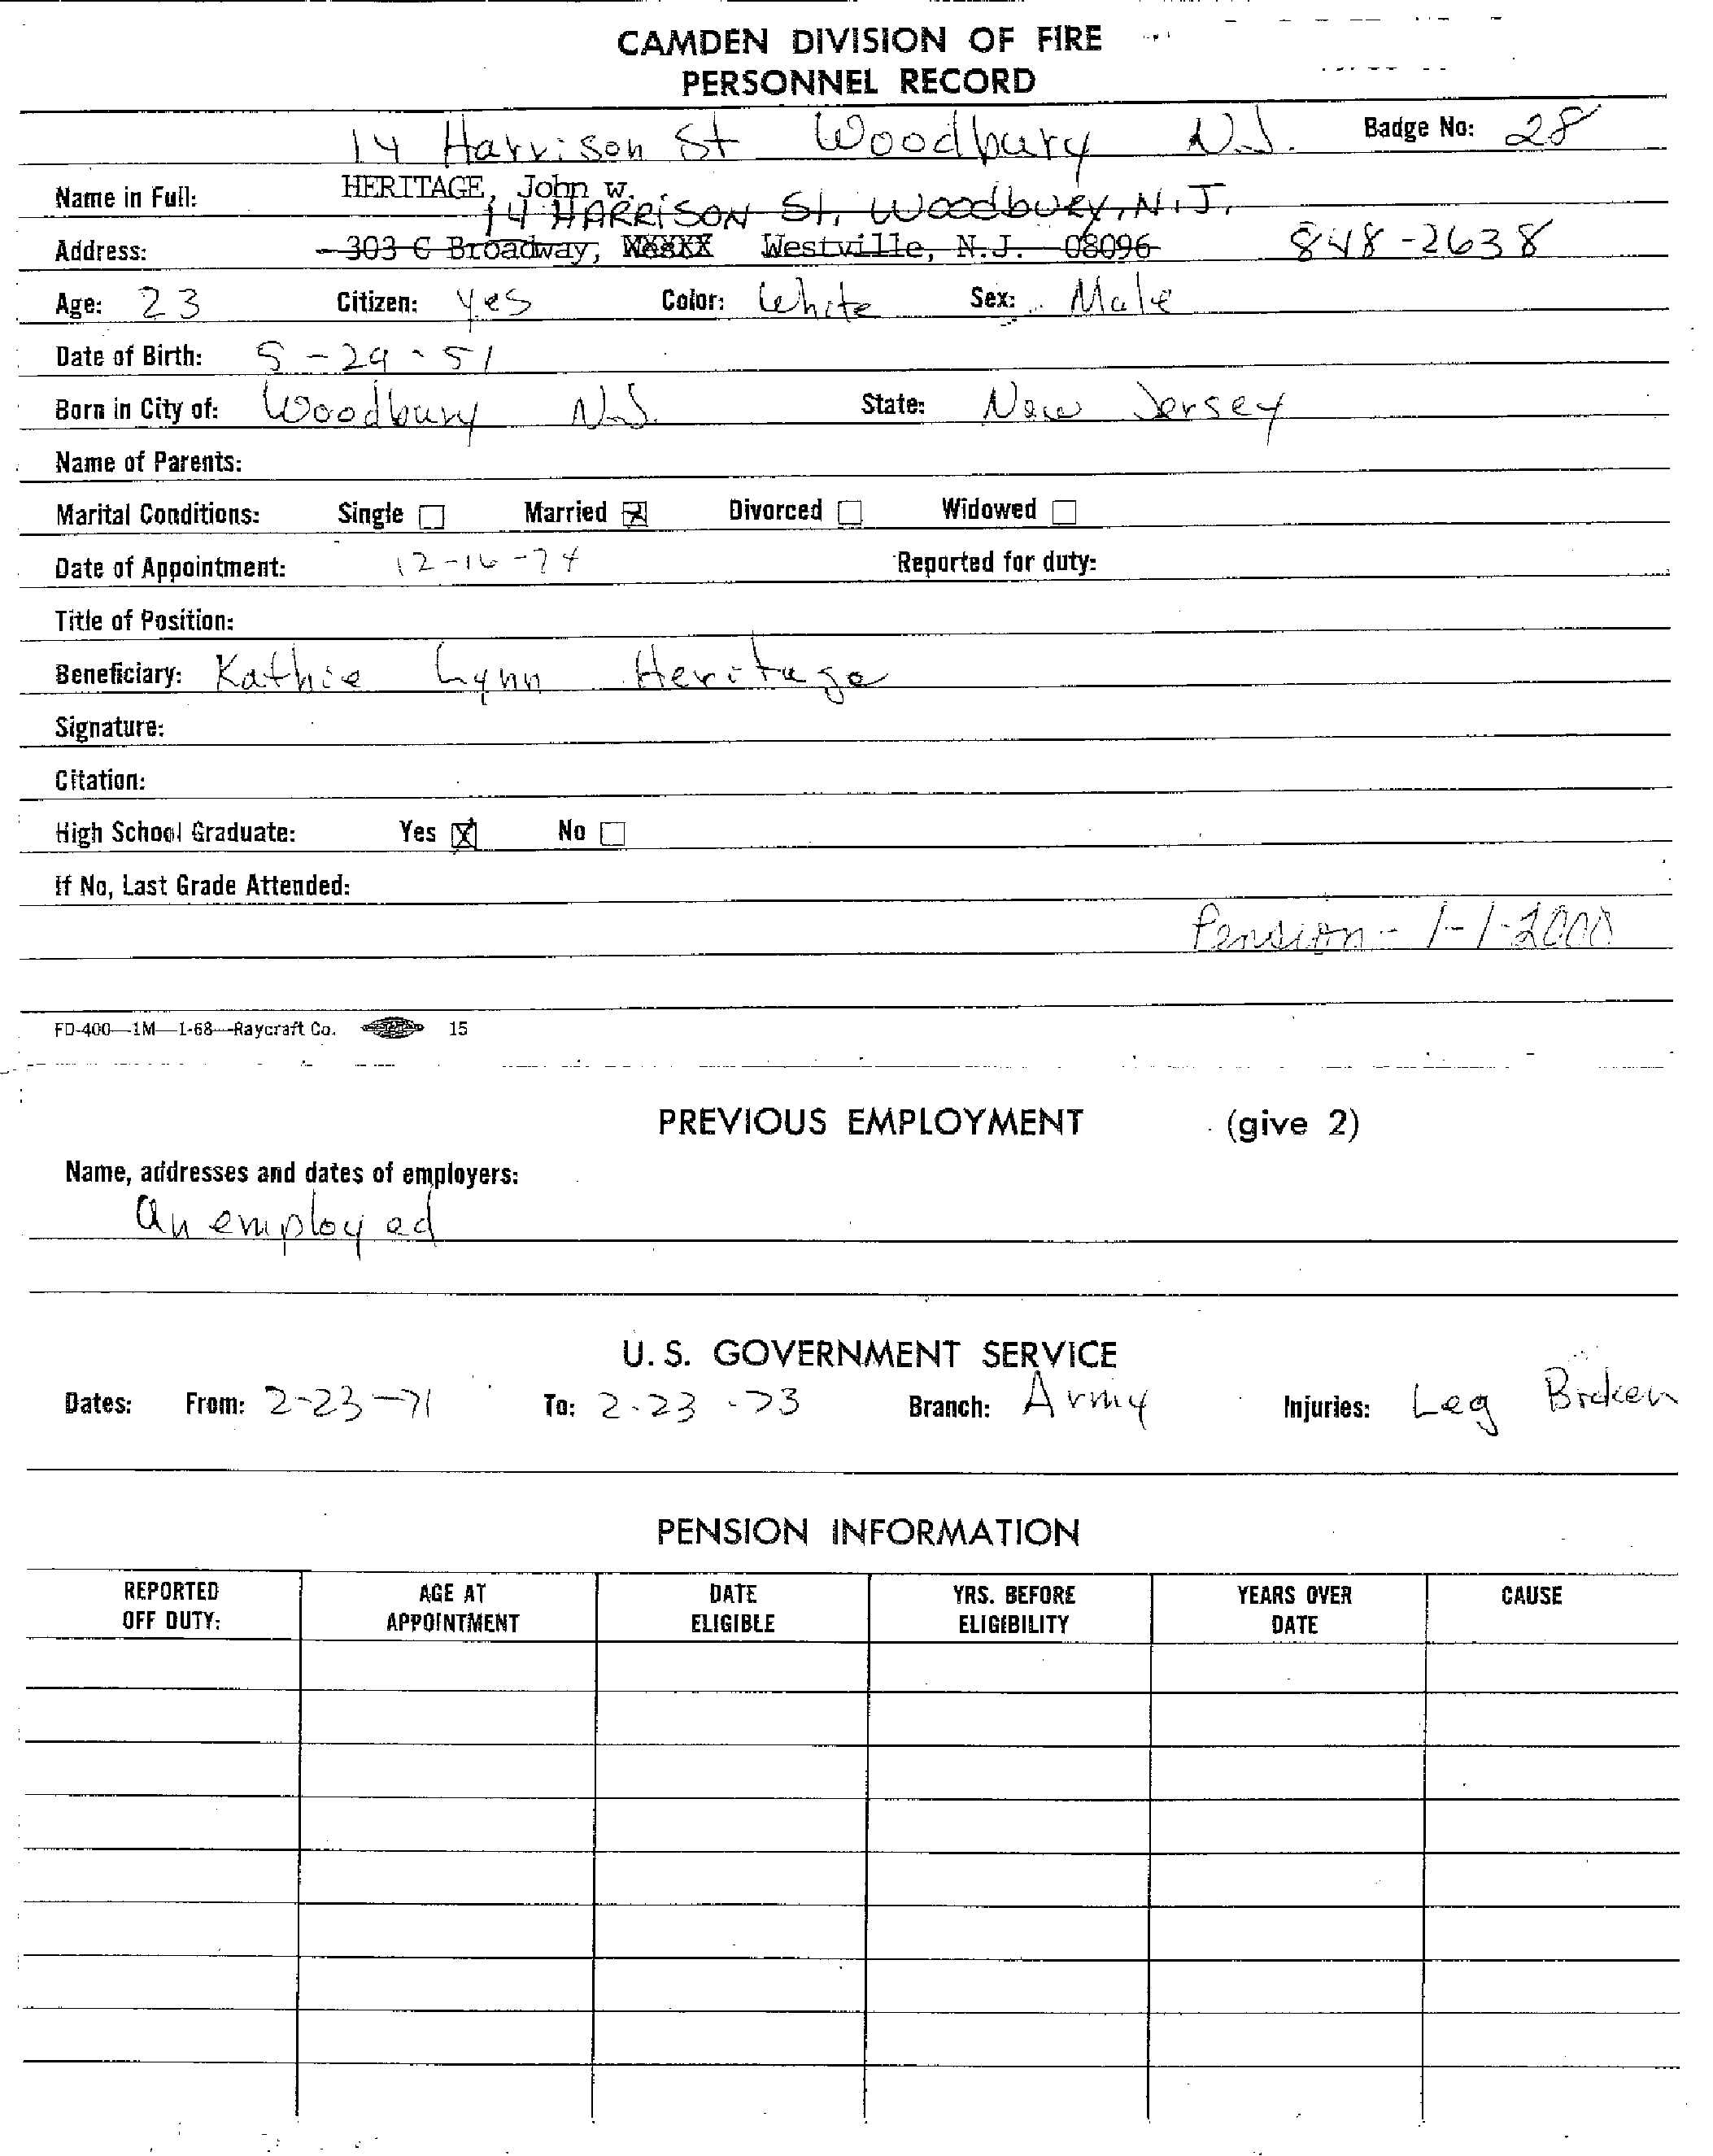 CAMDEN DIVISION OF FIRE
PERSONNEL RECORD
14 Harrison St Woodbury N.J. Badge No: 28
Name in Full: HERITAGE, John w.
14 HARRISON St, Woodbury, N.J.
Address: 303 C Broadway, Westville, N.J. 08096 848-2638
Age: 23 Citizen: yes Color: White Sex: Male
Date of Birth: 5-29-51
Born in City of: Woodbury N.J. State: New Jersey
Name of Parents:
Marital Conditions: Single Married Divorced Widowed
Date of Appointment: 12-16-74 Reported for duty:
Title of Position:
Beneficiary: Kathie Lynn Heritage
Signature:
Citation:
High School Graduate: Yes X No
If No, Last Grade Attended:
Pension - 1-1-2000
FD-400—1M—1-68—Raycraft Co. 15
PREVIOUS EMPLOYMENT (give 2)
Name, addresses and dates of employers:
Unemployed
U. S. GOVERNMENT SERVICE
Dates: From: 2-23-71 To: 2-23-73 Branch: Army Injuries: Leg Broken
PENSION INFORMATION
REPORTED OFF DUTY: AGE AT APPOINTMENT DATE ELIGIBLE YRS. BEFORE ELIGIBILITY YEARS OVER DATE CAUSE